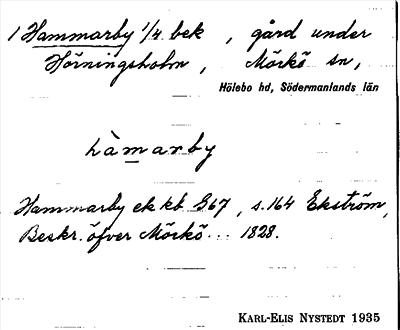 1 Hammarby 1/4 bek , gård under
Hörningsholm , Mörkö sn,
Hölebo hd, Södermanlands län
hàmarby
Hammarby ek kb G67 , s.164 Ekström,
Beskr. öfver Mörkö ... 1828.
KARL-ELIS NYSTEDT 1935